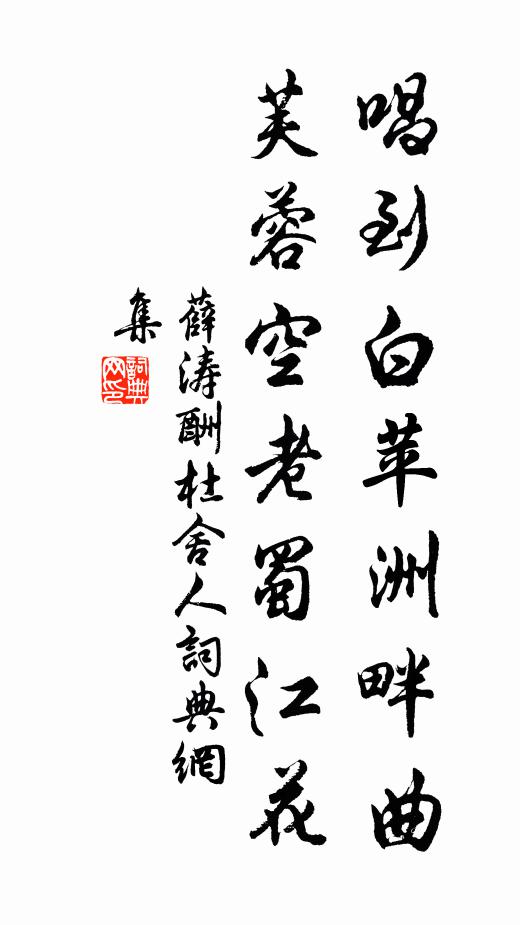 唱到白苹洲畔曲
芙蓉空老蜀江花
薛涛酬杜舍人詞典網
集
詞典網印